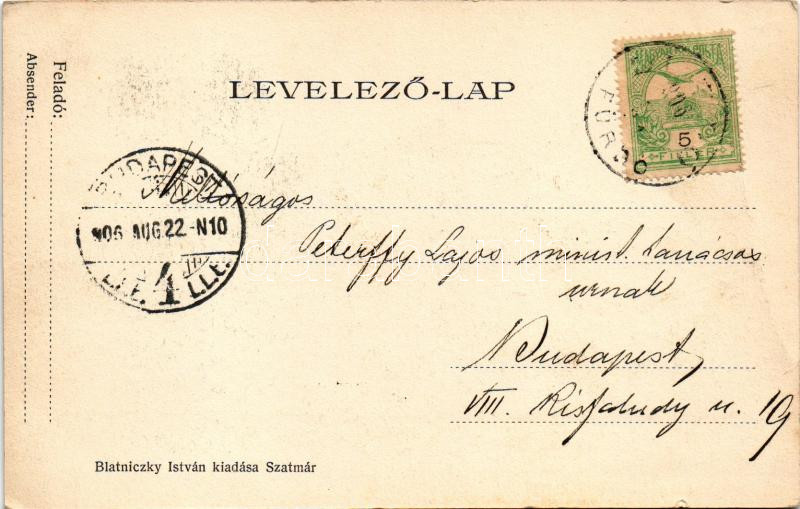 Feladó:
Absender:
LEVELEZŐ-LAP
5
FILLÉR
BUDAPEST
906 AUG. 22.-N10
4
Méltóságos
Peterffy Lajos minist. tanácsos
urnak
Budapest,
VIII. Kisfaludy u. 19
Blatniczky István kiadása Szatmár